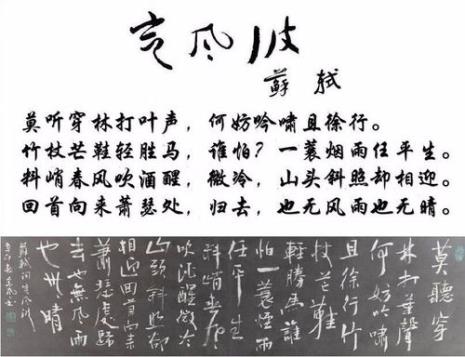 定风波
蘇軾
莫听穿林打叶声,何妨吟啸且徐行。
竹杖芒鞋轻胜马,谁怕?一蓑烟雨任平生。
料峭春风吹酒醒,微冷,山头斜照却相迎。
回首向来萧瑟处,归去,也无风雨也无晴。
莫聽穿
林打葉聲
何妨吟嘯
且徐行竹
杖芒鞋
輕勝馬誰
怕一蓑烟雨
任平生
料峭春風
吹酒醒微冷
山頭斜照却
相迎回首向来
蕭瑟處歸
去也無風雨
也無晴